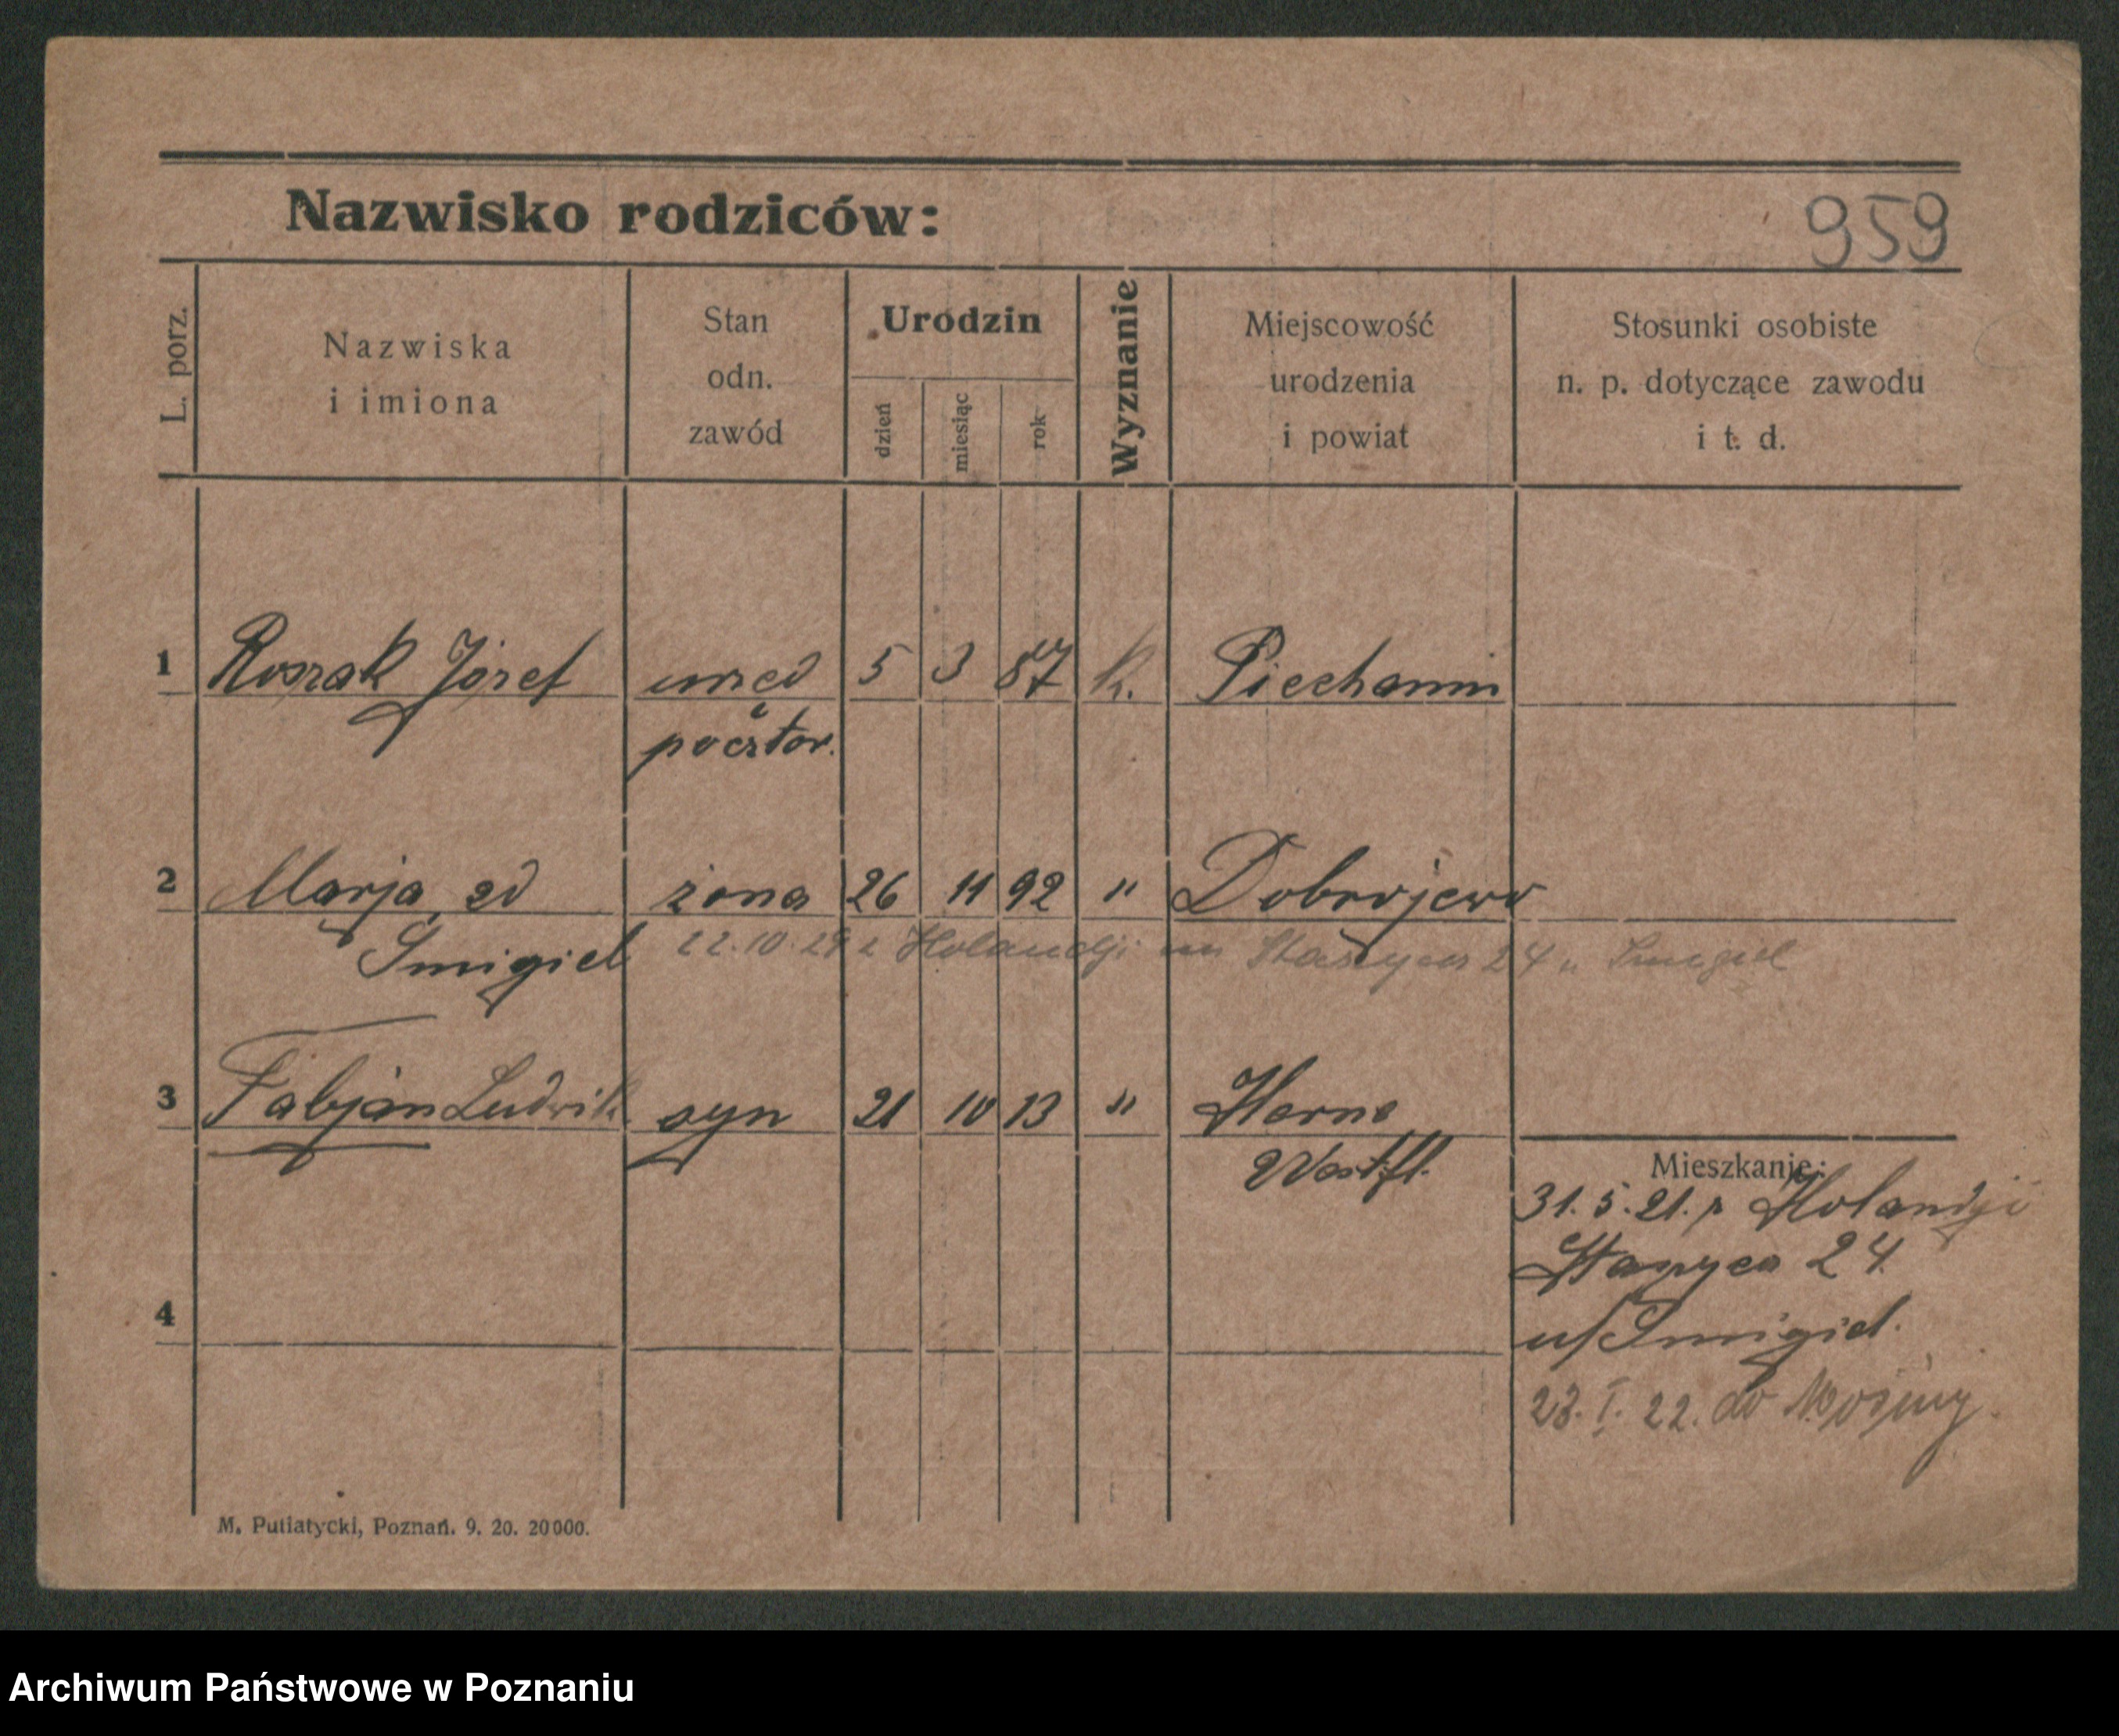 Nazwisko rodziców:
959
L. porz.
Nazwiska
i imiona
Stan
odn.
zawód
Urodzin
dzień
miesiąc
rok
Wyznanie
Miejscowość
urodzenia
i powiat
Stosunki osobiste
n. p. dotyczące zawodu
i t. d.
1 Roszak Józef urzęd 5 3 87 k. Piechanin
pocztow.
2 Marja zd żona 26 11 92 " Dobrojewo
Śmigiel 22.10.21 z Holandji Staszyca 24 u Śmigiel
3 Fabjan Ludwik syn 21 10 13 " Herne
Westfl.
Mieszkanie:
31.5.21. z Holandji
Staszyca 24
u/Śmigiel.
4
23. I. 22. do Mosiny
M. Putiatycki, Poznań. 9. 20. 20000.
Archiwum Państwowe w Poznaniu